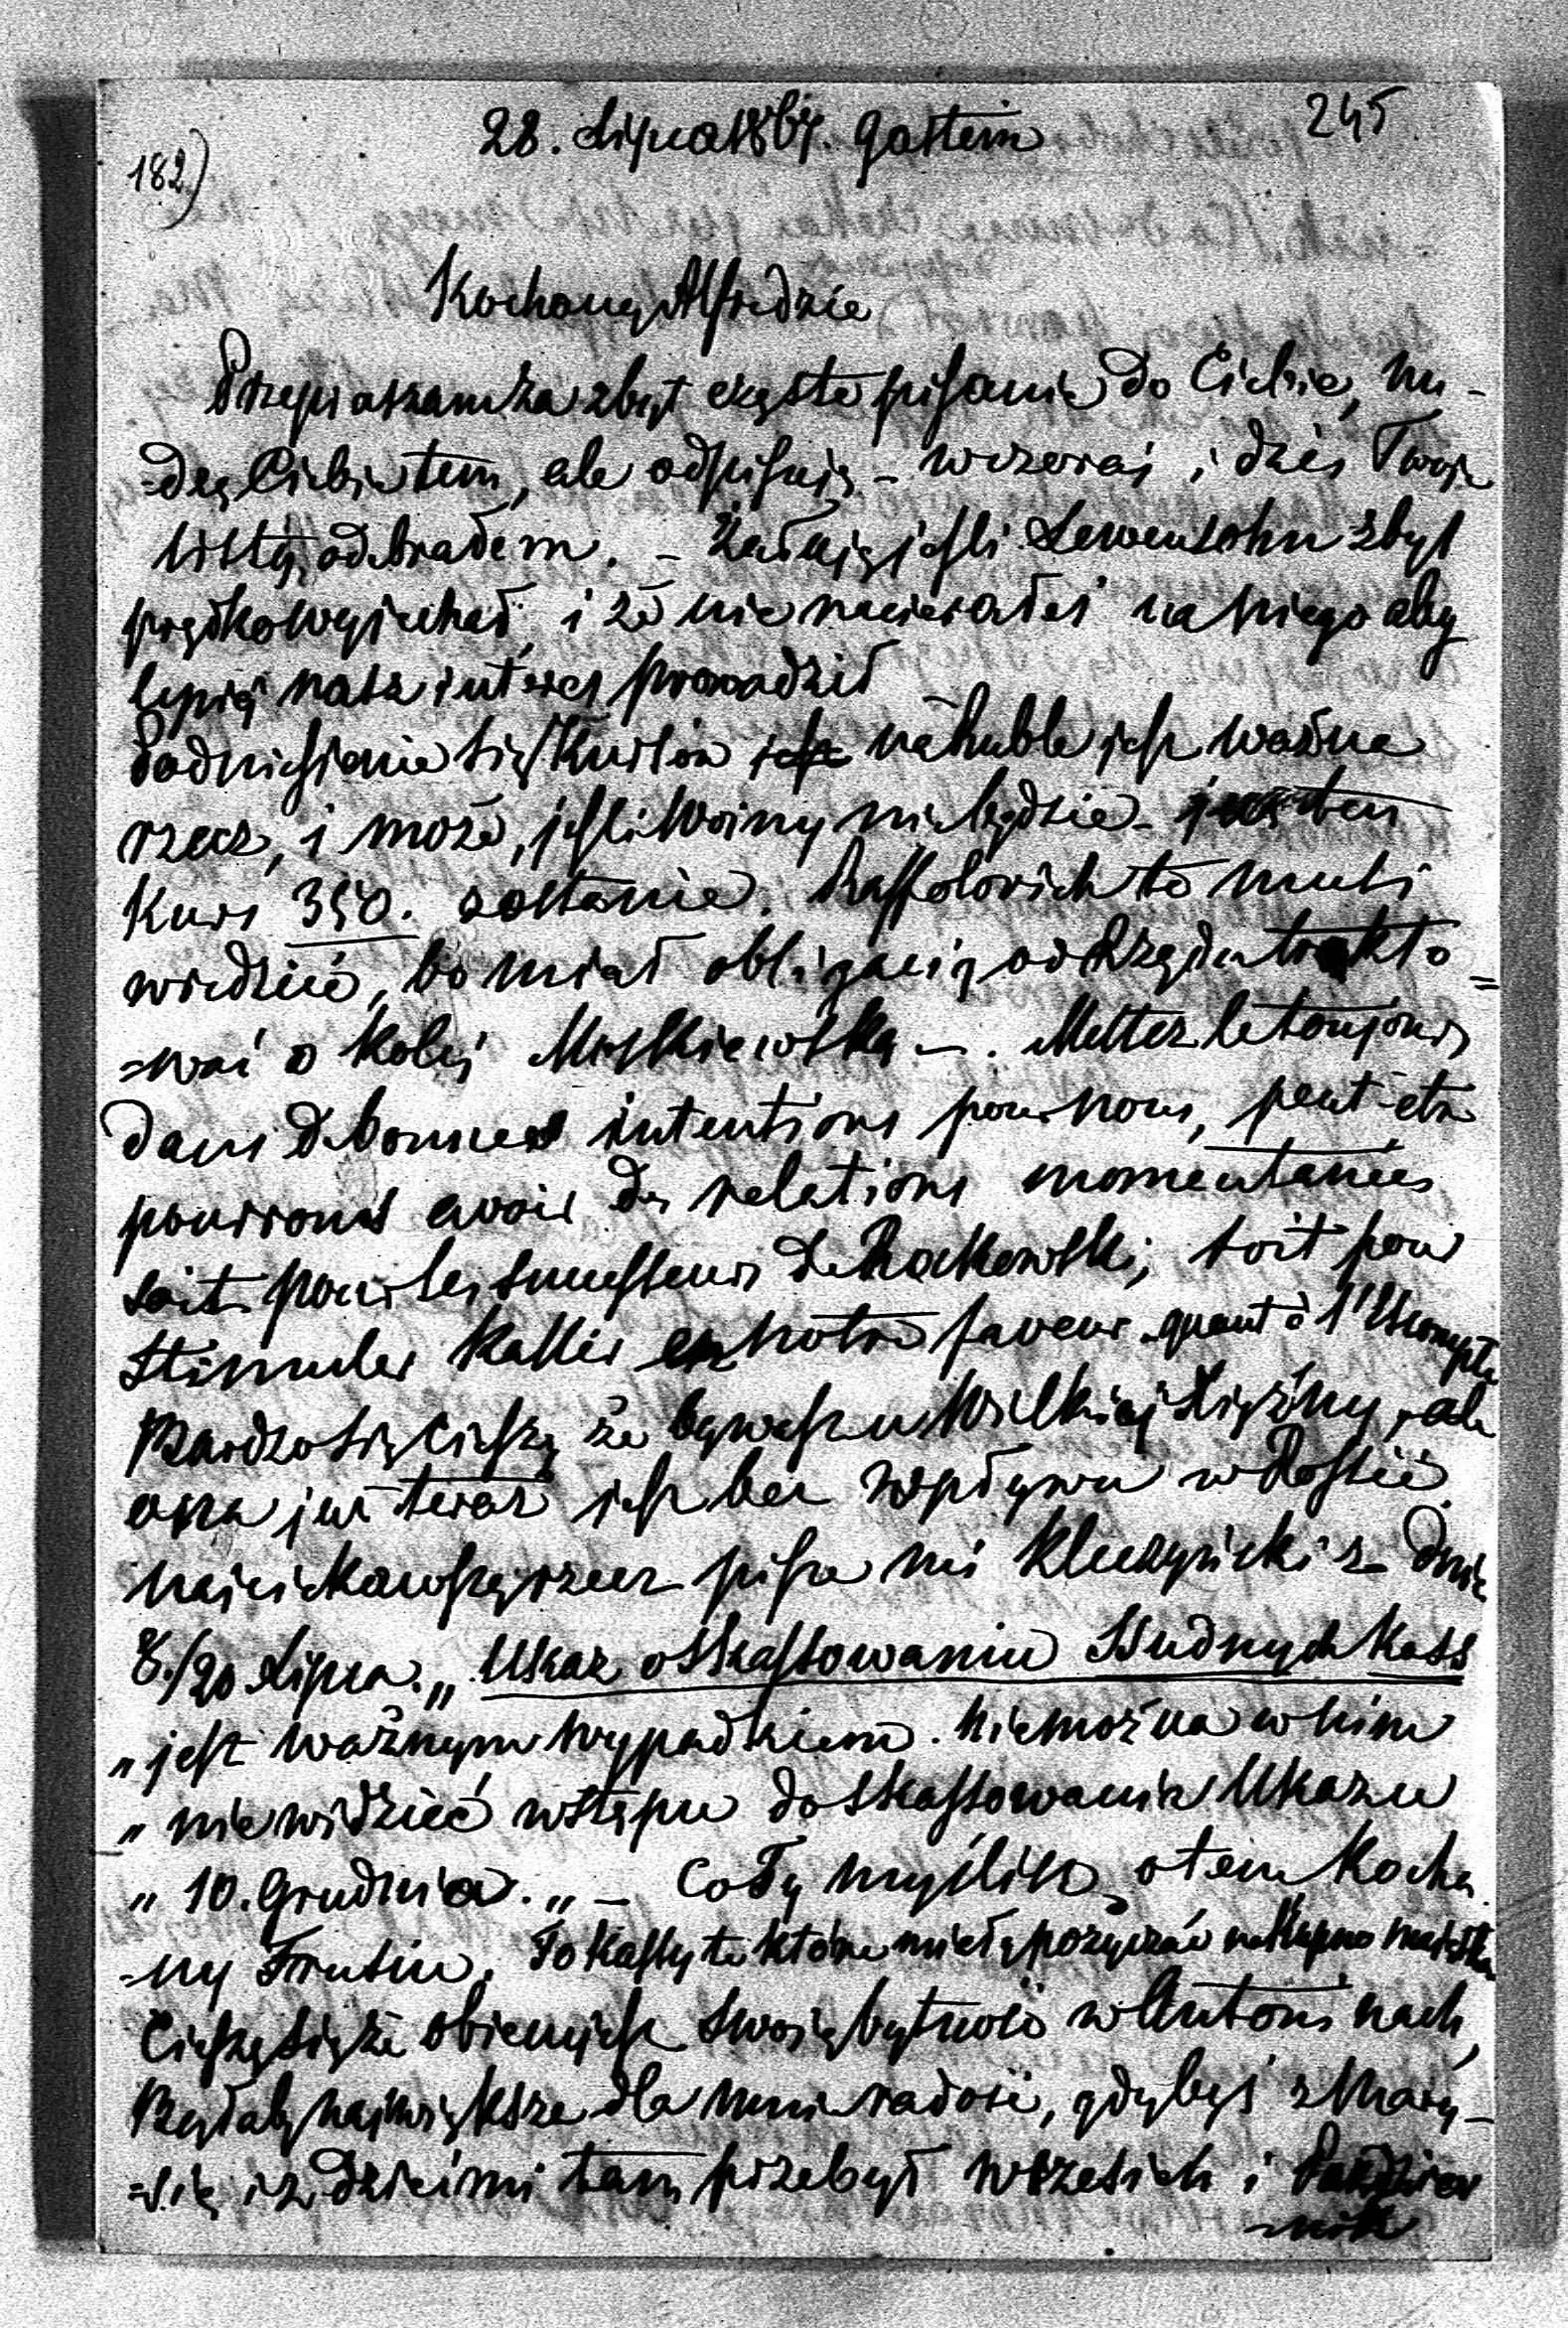 28. Lipca 1867. Gastein
245
182)
Kochany Alfredzie
Przepraszam za zbyt częste pisanie do Ciebie, nu-
=dzę Ciebie tem, ale odpisuję - wczoraj i dziś Twoje
listy odebrałem. - Żałuję jesli Lewensohn zbyt
prędko wyjechał, i że nie nacierałeś na niego aby
lepiej nasz interes prowadził
Podniesienie się Kursów na Ruble jest ważna
rzecz, i może, jesli Woiny nie będzie - ten
Kurs 350. zostanie. Raffolovich to musi
wiedzieć, bo miał obligacią od Rządu trakto=
=wać o Kolej Moskiewską -. Mettez le toujours
dans de bonnes intentions pour nous, peut-etre
pourrons avoir des relations momentanées
soit pour les successeurs de Rakowski, soit pour
stimuler Kaller en notre faveur. quant à l'Escompte
Bardzo się cieszę że bywasz u Wielkiej Xiężny, ale
ona już teraz jest bez wpływu w Rossii.
Najciekawszą rzecz pisze mi Kluczycki z dnia
8./20 Lipca. „Ukaz o skassowaniu Ssudnych Kass
„jest ważnym wypadkiem. Nie można w nim
„nie widzieć wstępu do skassowania Ukazu
„10. Grudnia." - Co Ty myślisz o tem Kocha
=ny Frutin. To Kassy te które miały pożyczać na Kupno majątków
Cieszę się że obiecujesz swoią bytność w Antoninach,
Byłaby największa dla mnie radość, gdybyś z Mary-
=sią i z dziećmi tam przebył Wrzesień i Paździer
=nik